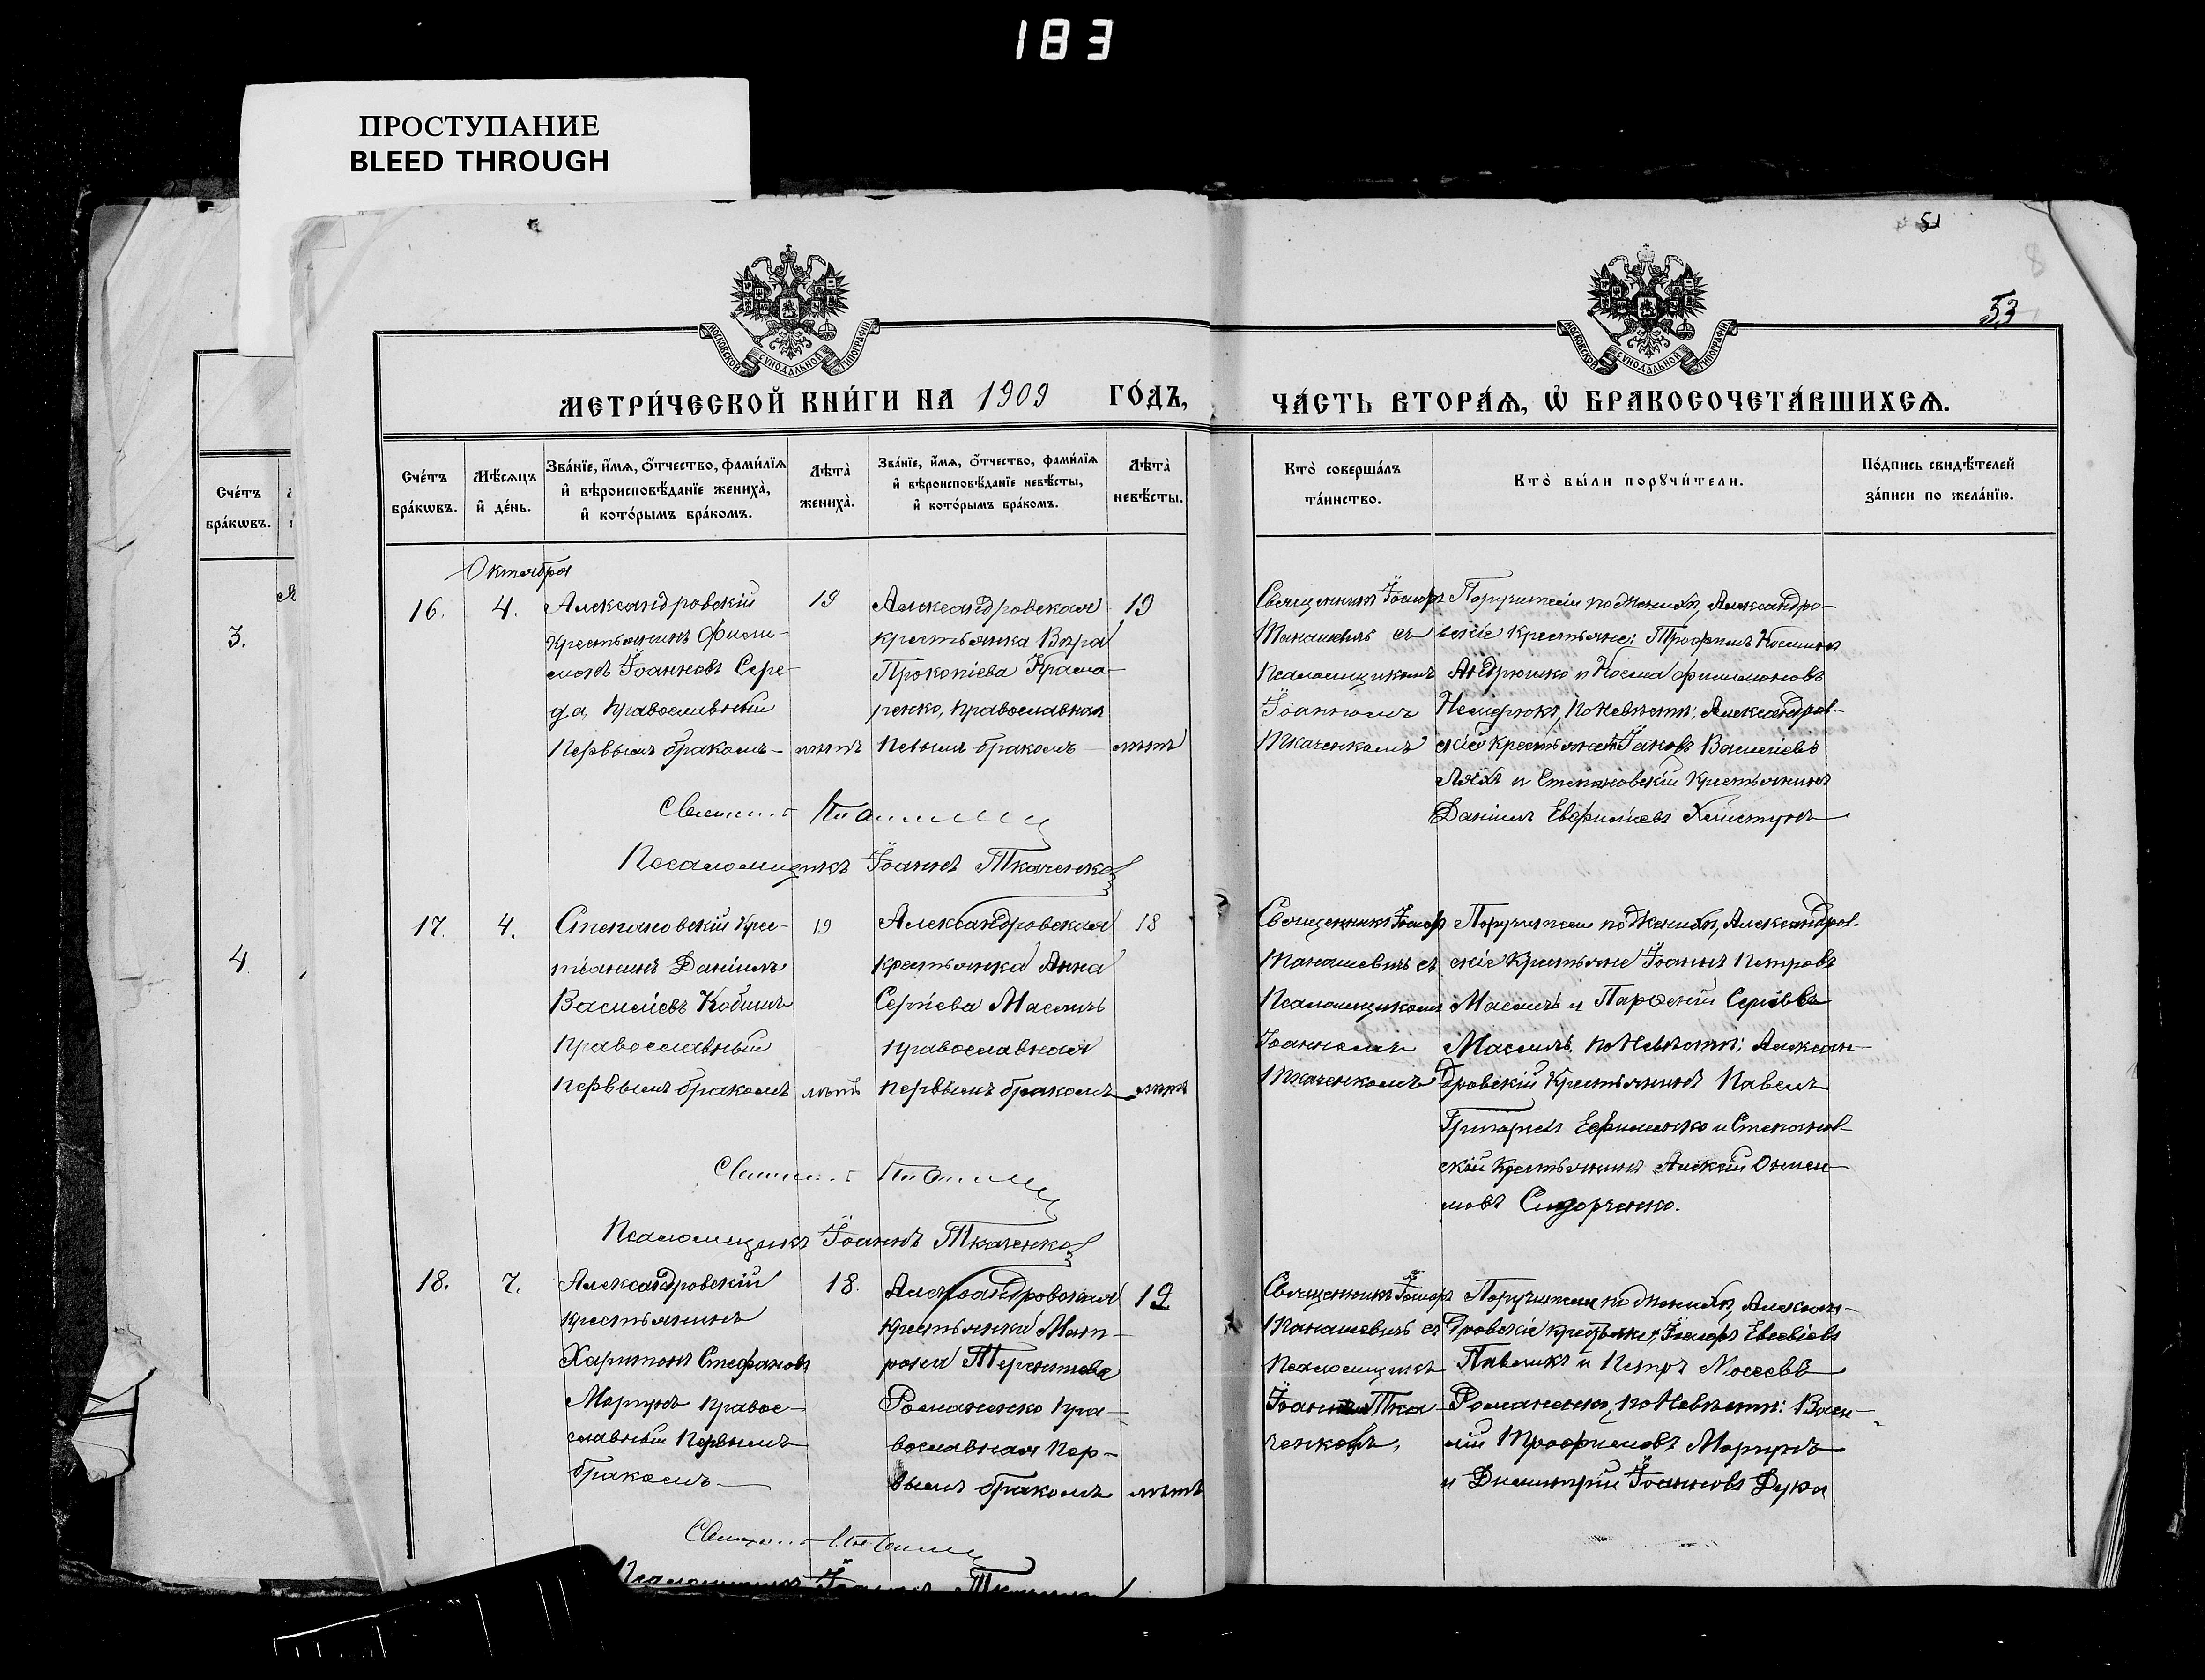 183
ПРОСТУПАНИЕ
BLEED THROUGH
51
53
МОСКОВСКОЙ СѴНОДАЛЬНОЙ ТИПОГРАФІИ
МОСКОВСКОЙ СѴНОДАЛЬНОЙ ТИПОГРАФІИ
МЕТРИ́ЧЕСКОЙ КНИ́ГИ НА 1909 ГО́ДЪ,
ЧА́СТЬ ВТОРА́Ѧ, Ѡ҆ БРАКОСОЧЕТА́ВШИХСѦ.
Сче́тъ бра́кѡвъ.
Мѣ́сѧцъ и҆ де́нь.
Зва́нїе, и҆́мѧ, ѻ҆́тчество, фами́лїѧ и҆ вѣроисповѣ́данїе жениха̀, и҆ кото́рымъ бра́комъ.
Лѣта̀ жениха̀.
Зва́нїе, и҆́мѧ, ѻ҆́тчество, фами́лїѧ и҆ вѣроисповѣ́данїе невѣ́сты, и҆ кото́рымъ бра́комъ.
Лѣта̀ невѣ́сты.
Кто̀ соверша́лъ та́инство.
Кто̀ бы́ли порꙋчи́тели.
По́дпись свидѣ́телей за́писи по жела́нїю.
Сче́тъ
бра́кѡвъ.
3.
4.
Октября
16.
4.
Александровскій
крестьянинъ Фили-
монъ Іоанновъ Сере-
да, православный
первымъ бракомъ
19
лѣтъ
Александровская
крестьянка Вѣра
Прокопіева Крама-
ренко, православная
певымъ бракомъ
19
лѣтъ
Священникъ Іосифъ
Манашевичъ съ
псаломщикомъ
Іоанномъ
Ткаченкомъ
Поручители по женихѣ, Александро-
вскіе крестьяне: Трофимъ Косминъ
Андрюшко и Косма Филимоновъ
по невѣстѣ: Александров-
скій крестьянинъ Іаковъ Василіевъ
Ляхъ и Степановскій крестьянинъ
Даніилъ Евфиміевъ
Псаломщикъ Іоаннъ Ткаченко
17.
4.
Степановскій крес-
тьянинъ Даніилъ
Василіевъ
православный
первымъ бракомъ
19
лѣтъ
Александровская
крестьянка Анна
Сергіева Масличъ
православная
первымъ бракомъ
18
лѣтъ
Священникъ Іосифъ
Манашевичъ съ
псаломщикомъ
Іоанномъ
Ткаченкомъ
Поручители по женихѣ, Александров-
скіе крестьяне Іоаннъ Петровъ
Масличъ и Парфеній Сергіевъ
Масличъ, по невѣстѣ: Алексан-
дровскій крестьянинъ Павелъ
Григорьевъ Ефименко и Степанов-
скій крестьянинъ Алексій
Сидорченко.
Псаломщикъ Іоаннъ Ткаченко
18.
7.
Александровскій
крестьянинъ
Харитонъ Стефановъ
Моргунъ правос-
славный первымъ
бракомъ
18.
Александровская
крестьянка Мат-
рона Терентіева
Романенко пра-
вославная пер-
вымъ бракомъ
19
лѣтъ
Священникъ Іосифъ
Манашевичъ съ
псаломщикъ
Ткa-
ченкомъ,
Поручители по женихѣ, Алексан-
дровскіе крестьяне, Іосифъ Евсевіевъ
Павликъ и Петръ Моссевъ
Романенко, по невѣстѣ: Васи-
лій Трофимовъ Моргунъ
и Димитрій Іоанновъ Дука
Псаломщикъ Іоаннъ